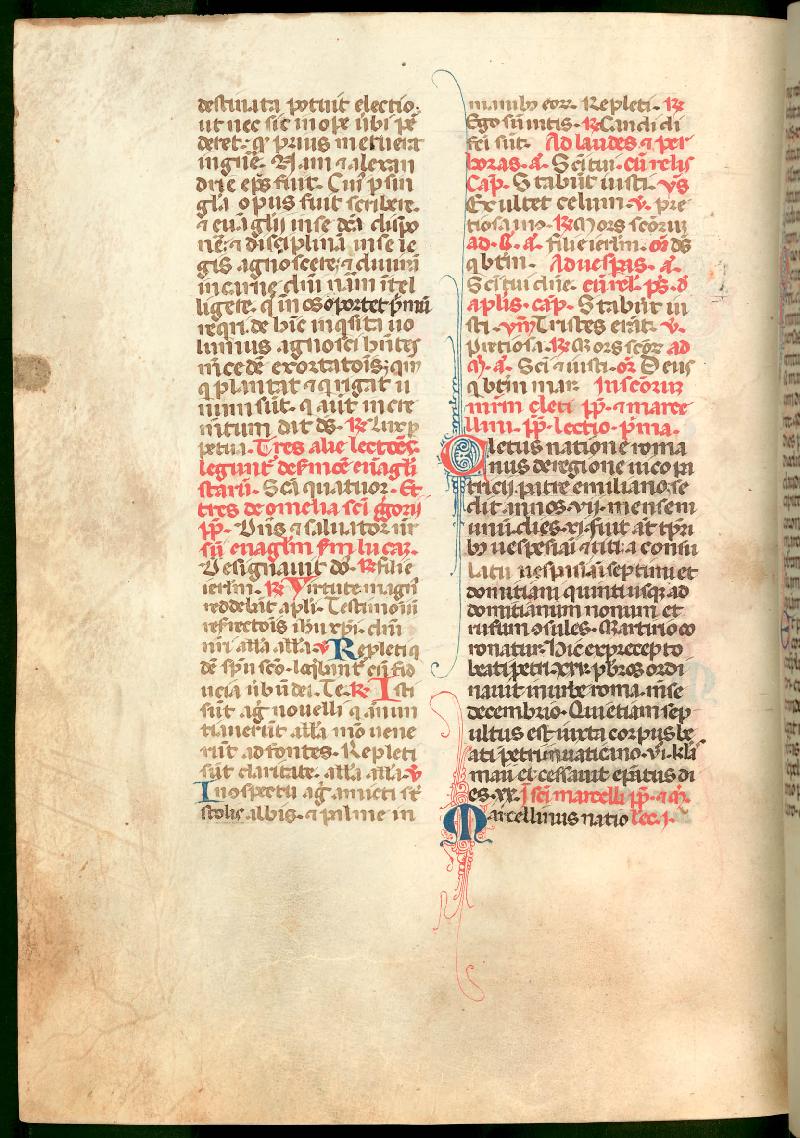 destinata potuit electio.
ut nec sic inope tibi pe
deret. q prius meruerat
ingne. Nam & alexan
drie eps fuit. Cui p sin
gla opus fuit scribere.
& euāglij in se dca dispo
nē. & disciplinā in se le
gis agnoscere. & diuinā
in carne dni nām ītel
ligere. q in os oportet pmū
reqri. de hinc inqsita uo
lumus agnosci hntes
mcedē exortatōis. qm
q plantat & q rigat u
num sūt. q aūt incre
mtum dat ds. R Lux p
petua. Tres alie lectōes
legunt de smōe euāgli
starū. Scā quatuor. Et
tres de omelia sci ggorij
pp. Dns & saluator nr
sū euaglm sm lucaz.
Designauit ds. R filie
ierlm. R Virtute magn
reddebāt apli. Testimoniū
resrectōis ihu xpi. dni
nri alla alla. V Repleti q
dē spu sco. loqbant cū fid
ucia ūbū dei. Te. R Isti
sūt ag nouelli q anun
tiauerūt alla mō uene
rūt ad fontes. Repleti
sūt claritate. alla alla. V
In cspectu ag amicti st
stolis albis. & palme in
manib eoz. Repleti. R
Ego sū uitis. R Candidi
fci sūt. Ad laudes & per
horas. a. Sci tui. cū relis
Cap. Stabūt iusti. VS
Exultet celum. V. pre
tiosa ī 9. R Mors scōrum
ad. B. a. filie ierlm. or ds
q btm. Ad uespas. a.
Sci tui dne. cū rel. ps. d
aplis. cap. Stabūt iu
sti. ym Tristes erāt. V.
Pretiosa. R Mors scōz ad
M. a. Sci & iusti. or Deus
q btm mar. In scōrum
mrm cleti pp. & marce
llini. pp. lectio. pma.
Cletus natione roma
nus de regione uico pa
tricij. patre emiliano. se
dit annos. vij. mensem
unū. dies. xi. fuit at tpri
b9 uespesiāi & titi. a consu
latu uespasiāi septimi et
domitiani quinti usq ad
domitianum nonum et
rufum 9sules. Martirio co
ronatur. Hic ex precepto
beati petri. xxv. pbros ordi
nauit in urbe roma. mse
decembrio. Qui etiam sep
ultus est iuxta corpus be
ati petri in uaticano. vi. kls
maii et cessauit epatus di
es. xx. I sci marcelli pp. & m.
Marcellinus natio lec. i.